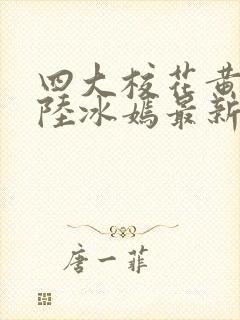 四大校花黄
陸冰嫣最新
唐一菲